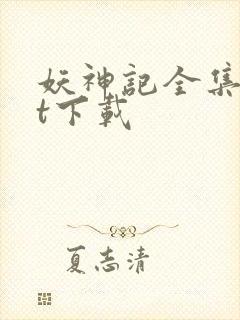 妖神記全集
t下載
夏志清